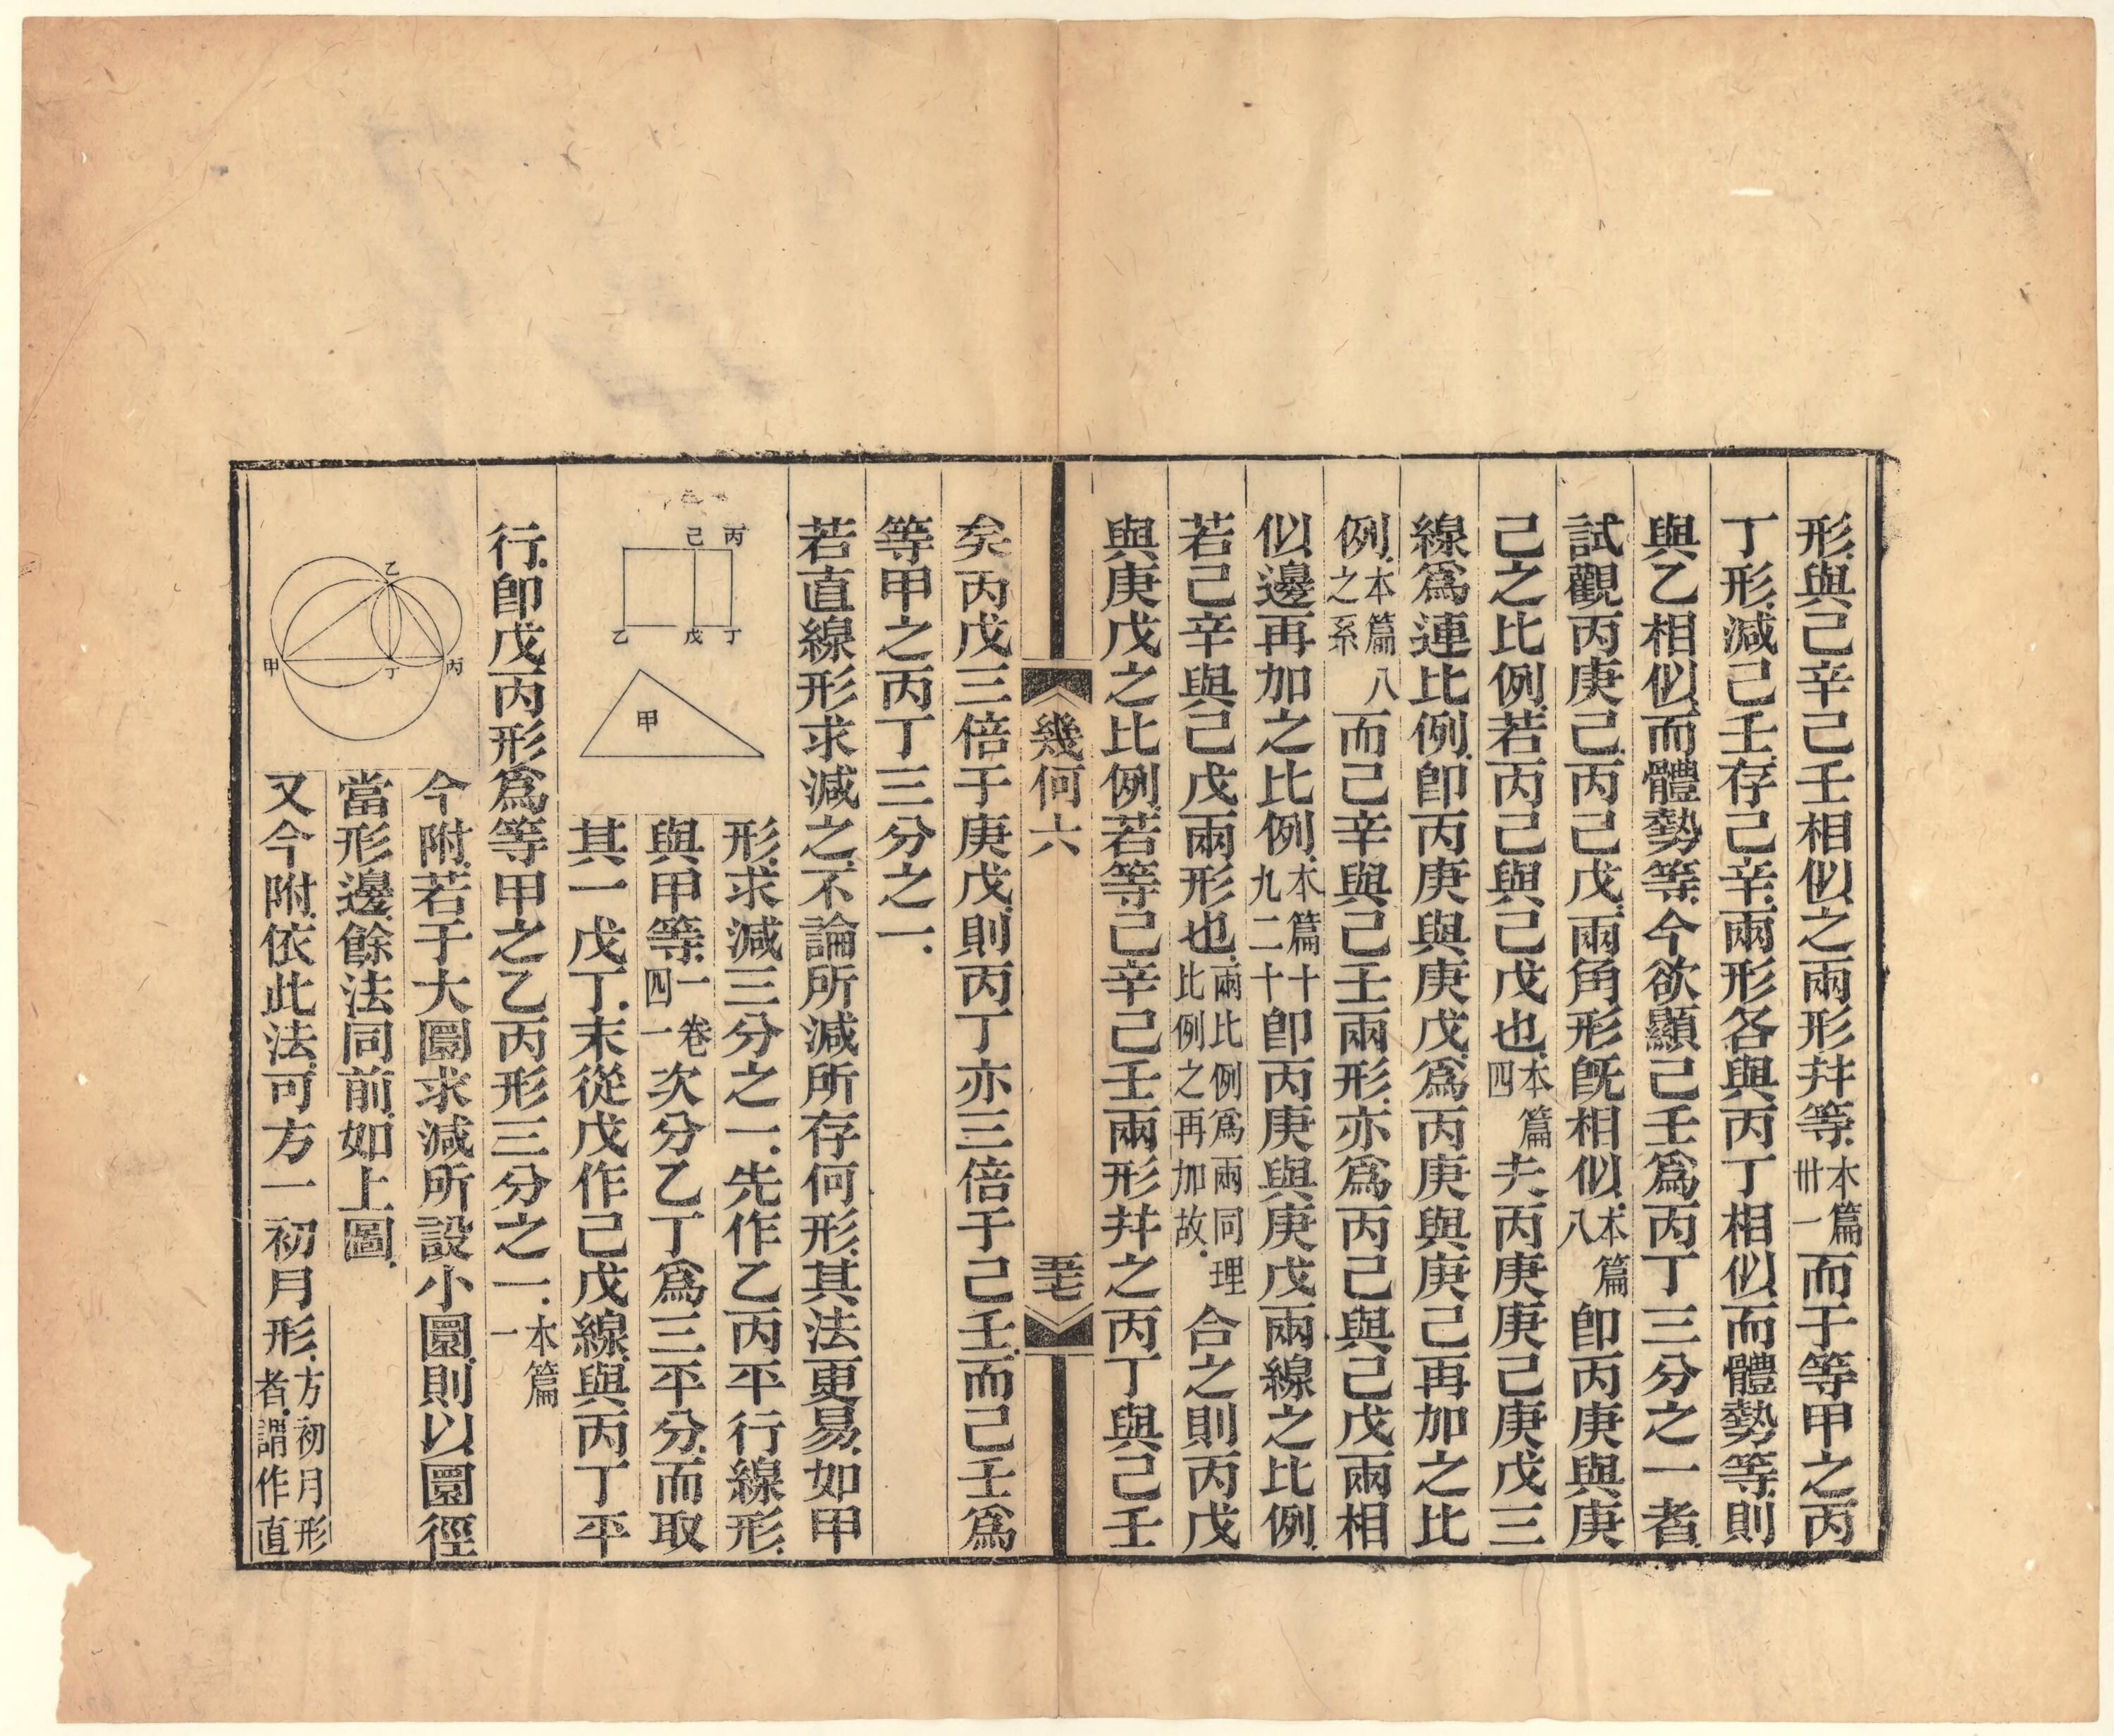 形與己辛己壬相似之兩形幷等本篇卅一而于等甲之丙
丁形減己壬存己辛兩形各與丙丁相似而體勢等則
與乙相似而體勢等今欲顯己壬爲丙丁三分之一者
試觀丙庚己丙己戊兩角形旣相似本篇八卽丙庚與庚
己之比例若丙己與己戊也本篇四夫丙庚庚己庚戊三
線爲連比例卽丙庚與庚戊爲丙庚與庚己再加之比
例本篇八之系而己辛與己壬兩形亦爲丙己與己戊兩相
似邊再加之比例本篇十九二十卽丙庚與庚戊兩線之比例
若己辛與己戊兩形也兩比例爲兩同理比例之再加故合之則丙戊
與庚戊之比例若等己辛己壬兩形幷之丙丁與己壬
幾何六
五七
矣丙戊三倍于庚戊則丙丁亦三倍于己壬而己壬爲
等甲之丙丁三分之一
若直線形求減之不論所減所存何形其法更易如甲
丙
己
丁
戊
乙
甲
形求減三分之一先作乙丙平行線形
與甲等一卷四一次分乙丁爲三平分而取
其一戊丁末從戊作己戊線與丙丁平
行卽戊丙形爲等甲之乙丙形三分之一本篇一
乙
甲
丁
丙
今附若于大圜求減所設小圜則以圜徑
當形邊餘法同前如上圖
又今附依此法可方一初月形方初月形者謂作直